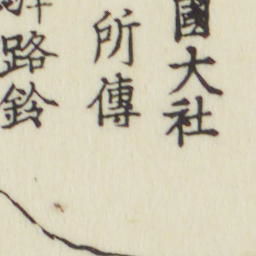 國大社
所傳
路鈴